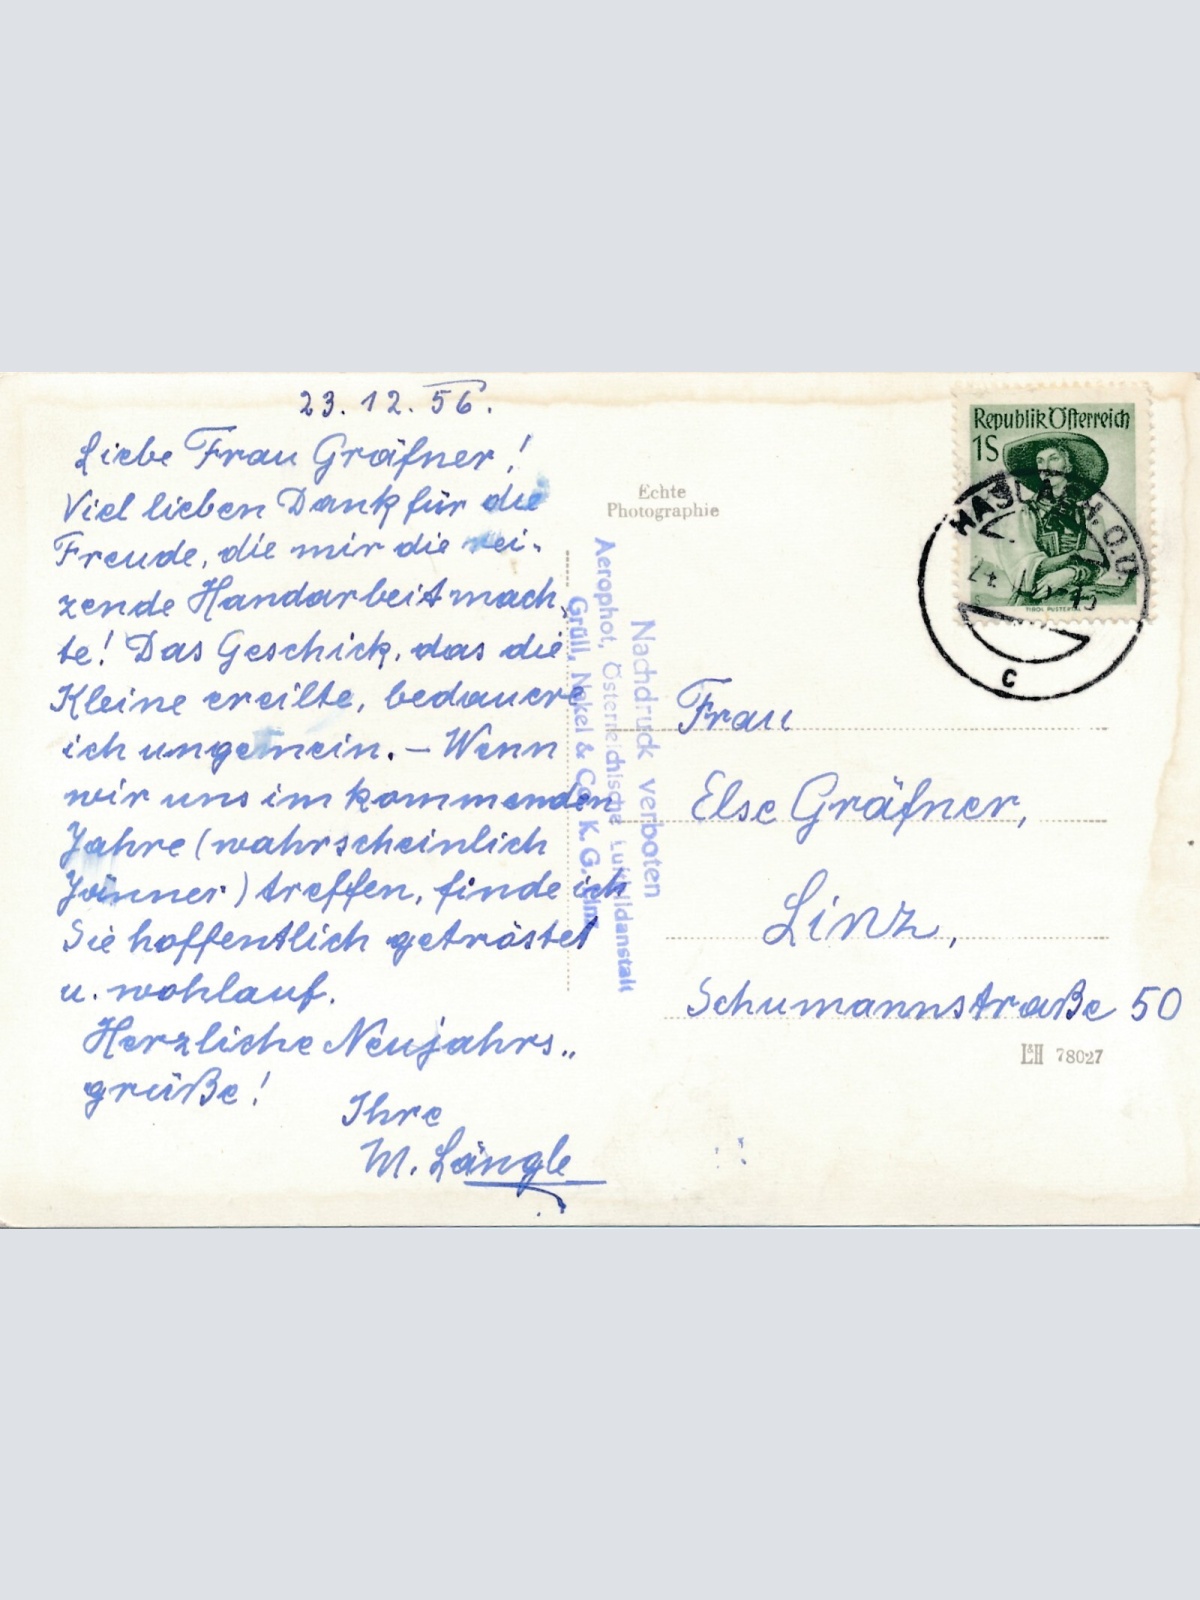 23.12.56.
Liebe Frau Gräfner!
Viel lieben Dank für die
Freude, die mir die rei-
zende Handarbeit mach-
te! Das Geschick, das die
Kleine ereilte, bedauere
ich ungemein. – Wenn
wir uns im kommenden
Jahre (wahrscheinlich
Jänner) treffen, finde ich
Sie hoffentlich getröstet
u. wohlauf.
Herzliche Neujahrs-
grüße!
Ihre
M. Längle
Echte
Photographie
Nachdruck verboten
Aerophot, Österreichische Luftbildanstalt
Grüll, Nekel & Co. K.G. Linz
Republik Österreich
1S
TIROL PUSTERTAL
HASLACH, O.Ö.
C
Frau
Else Gräfner,
Linz,
Schumannstraße 50
L&H 78027